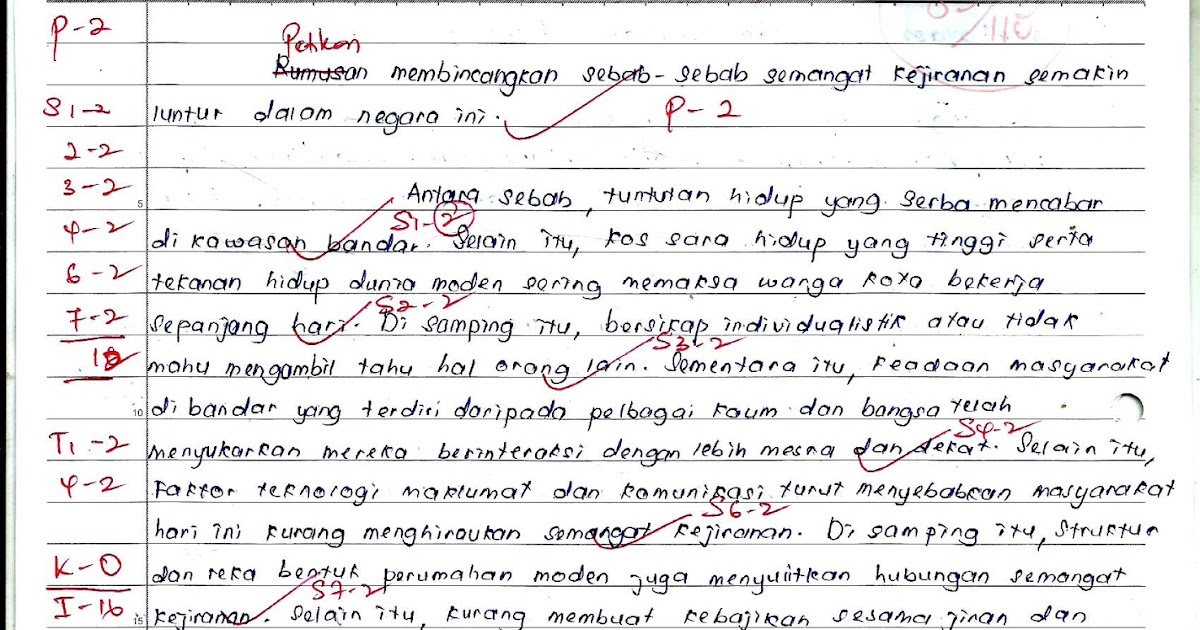 P-2
Petikan
Rumusan membincangkan sebab-sebab semangat kejiranan semakin
S1-2 luntur dalam negara ini. P-2
2-2
3-2 5 Antara sebab, tuntutan hidup yang serba mencabar
4-2 di kawasan bandar. S1-2 Selain itu, kos sara hidup yang tinggi serta
6-2 tekanan hidup dunia moden sering memaksa warga kota bekerja
7-2 sepanjang hari. S2-2 Di samping itu, bersikap individualistik atau tidak
mahu mengambil tahu hal orang lain. S3-2 Sementara itu, keadaan masyarakat
10 di bandar yang terdiri daripada pelbagai kaum dan bangsa telah
T1-2 menyukarkan mereka berinteraksi dengan lebih mesra dan dekat. S4-2 Selain itu,
4-2 faktor teknologi maklumat dan komunikasi turut menyebabkan masyarakat
hari ini kurang menghiraukan semangat kejiranan. S6-2 Di samping itu, struktur
K-0 dan reka bentuk perumahan moden juga menyulitkan hubungan semangat
I-16 15 kejiranan. S7-2 Selain itu, kurang membuat kebajikan sesama jiran dan